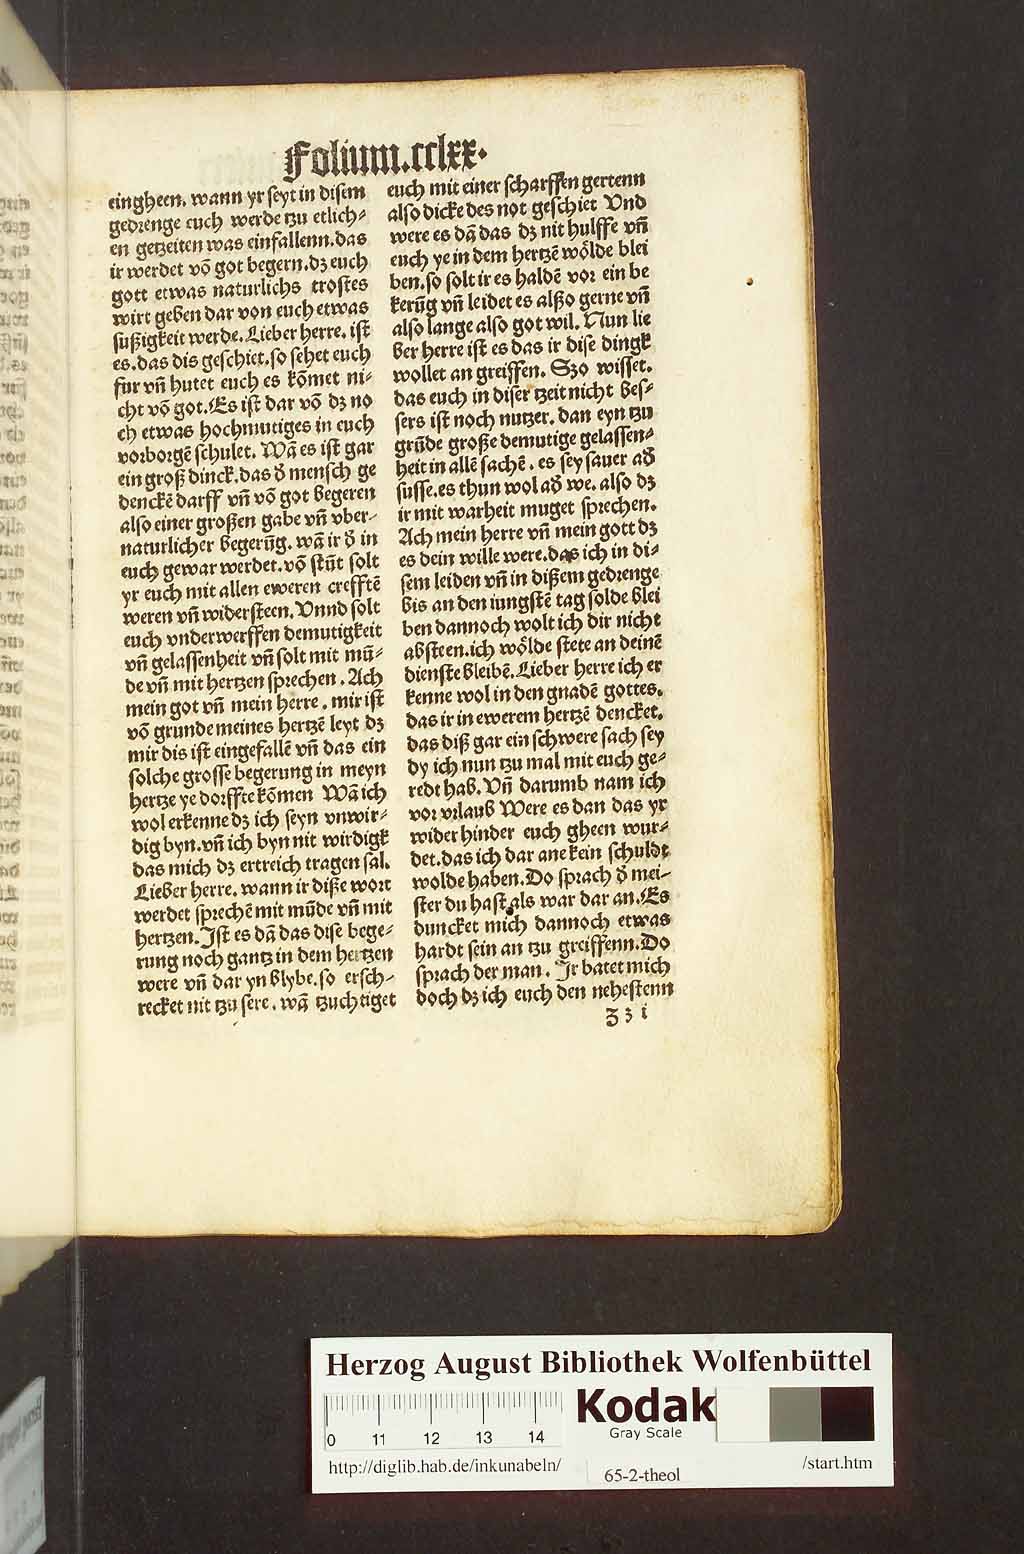 Folium.cclxx.
eingheen. wann yr seyt in disem
gedrenge euch werde tzu etlich⸗
en getzeiten was einfallenn. das
ir werdet võ got begern. dz euch
gott etwas naturlichs trostes
wirt geben dar von euch etwas
sußigkeit werde. Lieber herre. ist
es. das dis geschiet. so sehet euch
fur vñ hutet euch es kõmet ni⸗
cht võ got. Es ist dar võ dz no
ch etwas hochmutiges in euch
vorborgē schulet. Wã es ist gar
ein groß dinck. das ð mensch ge
denckē darff vñ võ got begeren
also einer großen gabe vñ vber⸗
naturlicher begerũg. wã ir ð in
euch gewar werdet. võ stũt solt
yr euch mit allen eweren crefftē
weren vñ widersteen. Vnnd solt
euch vnderwerffen demutigkeit
vñ gelassenheit vñ solt mit mũ⸗
de vñ mit hertzen sprechen. Ach
mein got vñ mein herre. mir ist
võ grunde meines hertzē leyt dz
mir dis ist eingefallē vñ das ein
solche grosse begerung in meyn
hertze ye dorffte kõmen Wã ich
wol erkenne dz ich seyn vnwir⸗
dig byn. vñ ich byn nit wirdigk
das mich dz ertreich tragen sal.
Lieber herre. wann ir diße wort
werdet sprechē mit mũde vñ mit
hertzen. Ist es dã das dise bege⸗
rung noch gantz in dem hertzen
were vñ dar yn blybe. so ersch⸗
recket nit tzu sere. wã tzuchtiget
euch mit einer scharffen gertenn
also dicke des not geschiet Vnd
were es dã das dz nit hulffe vñ
euch ye in dem hertzē wölde blei
ben. so solt ir es haldē vor ein be
kerũg vñ leidet es alßo gerne vñ
also lange also got wil. Nun lie
ber herre ist es das ir dise dingk
wollet an greiffen. Szo wisset.
das euch in diser tzeit nicht bes⸗
sers ist noch nutzer. dan eyn tzu
grũde große demutige gelassen⸗
heit in allē sachē. es sey sauer að
susse. es thun wol að we. also dz
ir mit warheit muget sprechen.
Ach mein herre vñ mein gott dz
es dein wille were. das ich in di⸗
sem leiden vñ in dißem gedrenge
bis an den iungstē tag solde blei
ben dannoch wolt ich dir nicht
absteen. ich wölde stete an deinē
dienste bleibē. Lieber herre ich er
kenne wol in den gnadē gottes.
das ir in ewerem hertzē dencket.
das diß gar ein schwere sach sey
dy ich nun tzu mal mit euch ge⸗
redt hab. Vñ darumb nam ich
vor vrlaub Were es dan das yr
wider hinder euch gheen wur⸗
det. das ich dar ane kein schuldt
wolde haben. Do sprach ð mei⸗
ster du hast als war dar an. Es
duncket mich dannoch etwas
hardt sein an tzu greiffenn. Do
sprach der man. Ir batet mich
doch dz ich euch den nehestenn
Z z i
Herzog August Bibliothek Wolfenbüttel
Kodak
Gray Scale
0 11 12 13 14
http://diglib.hab.de/inkunabeln/
65-2-theol
/start.htm